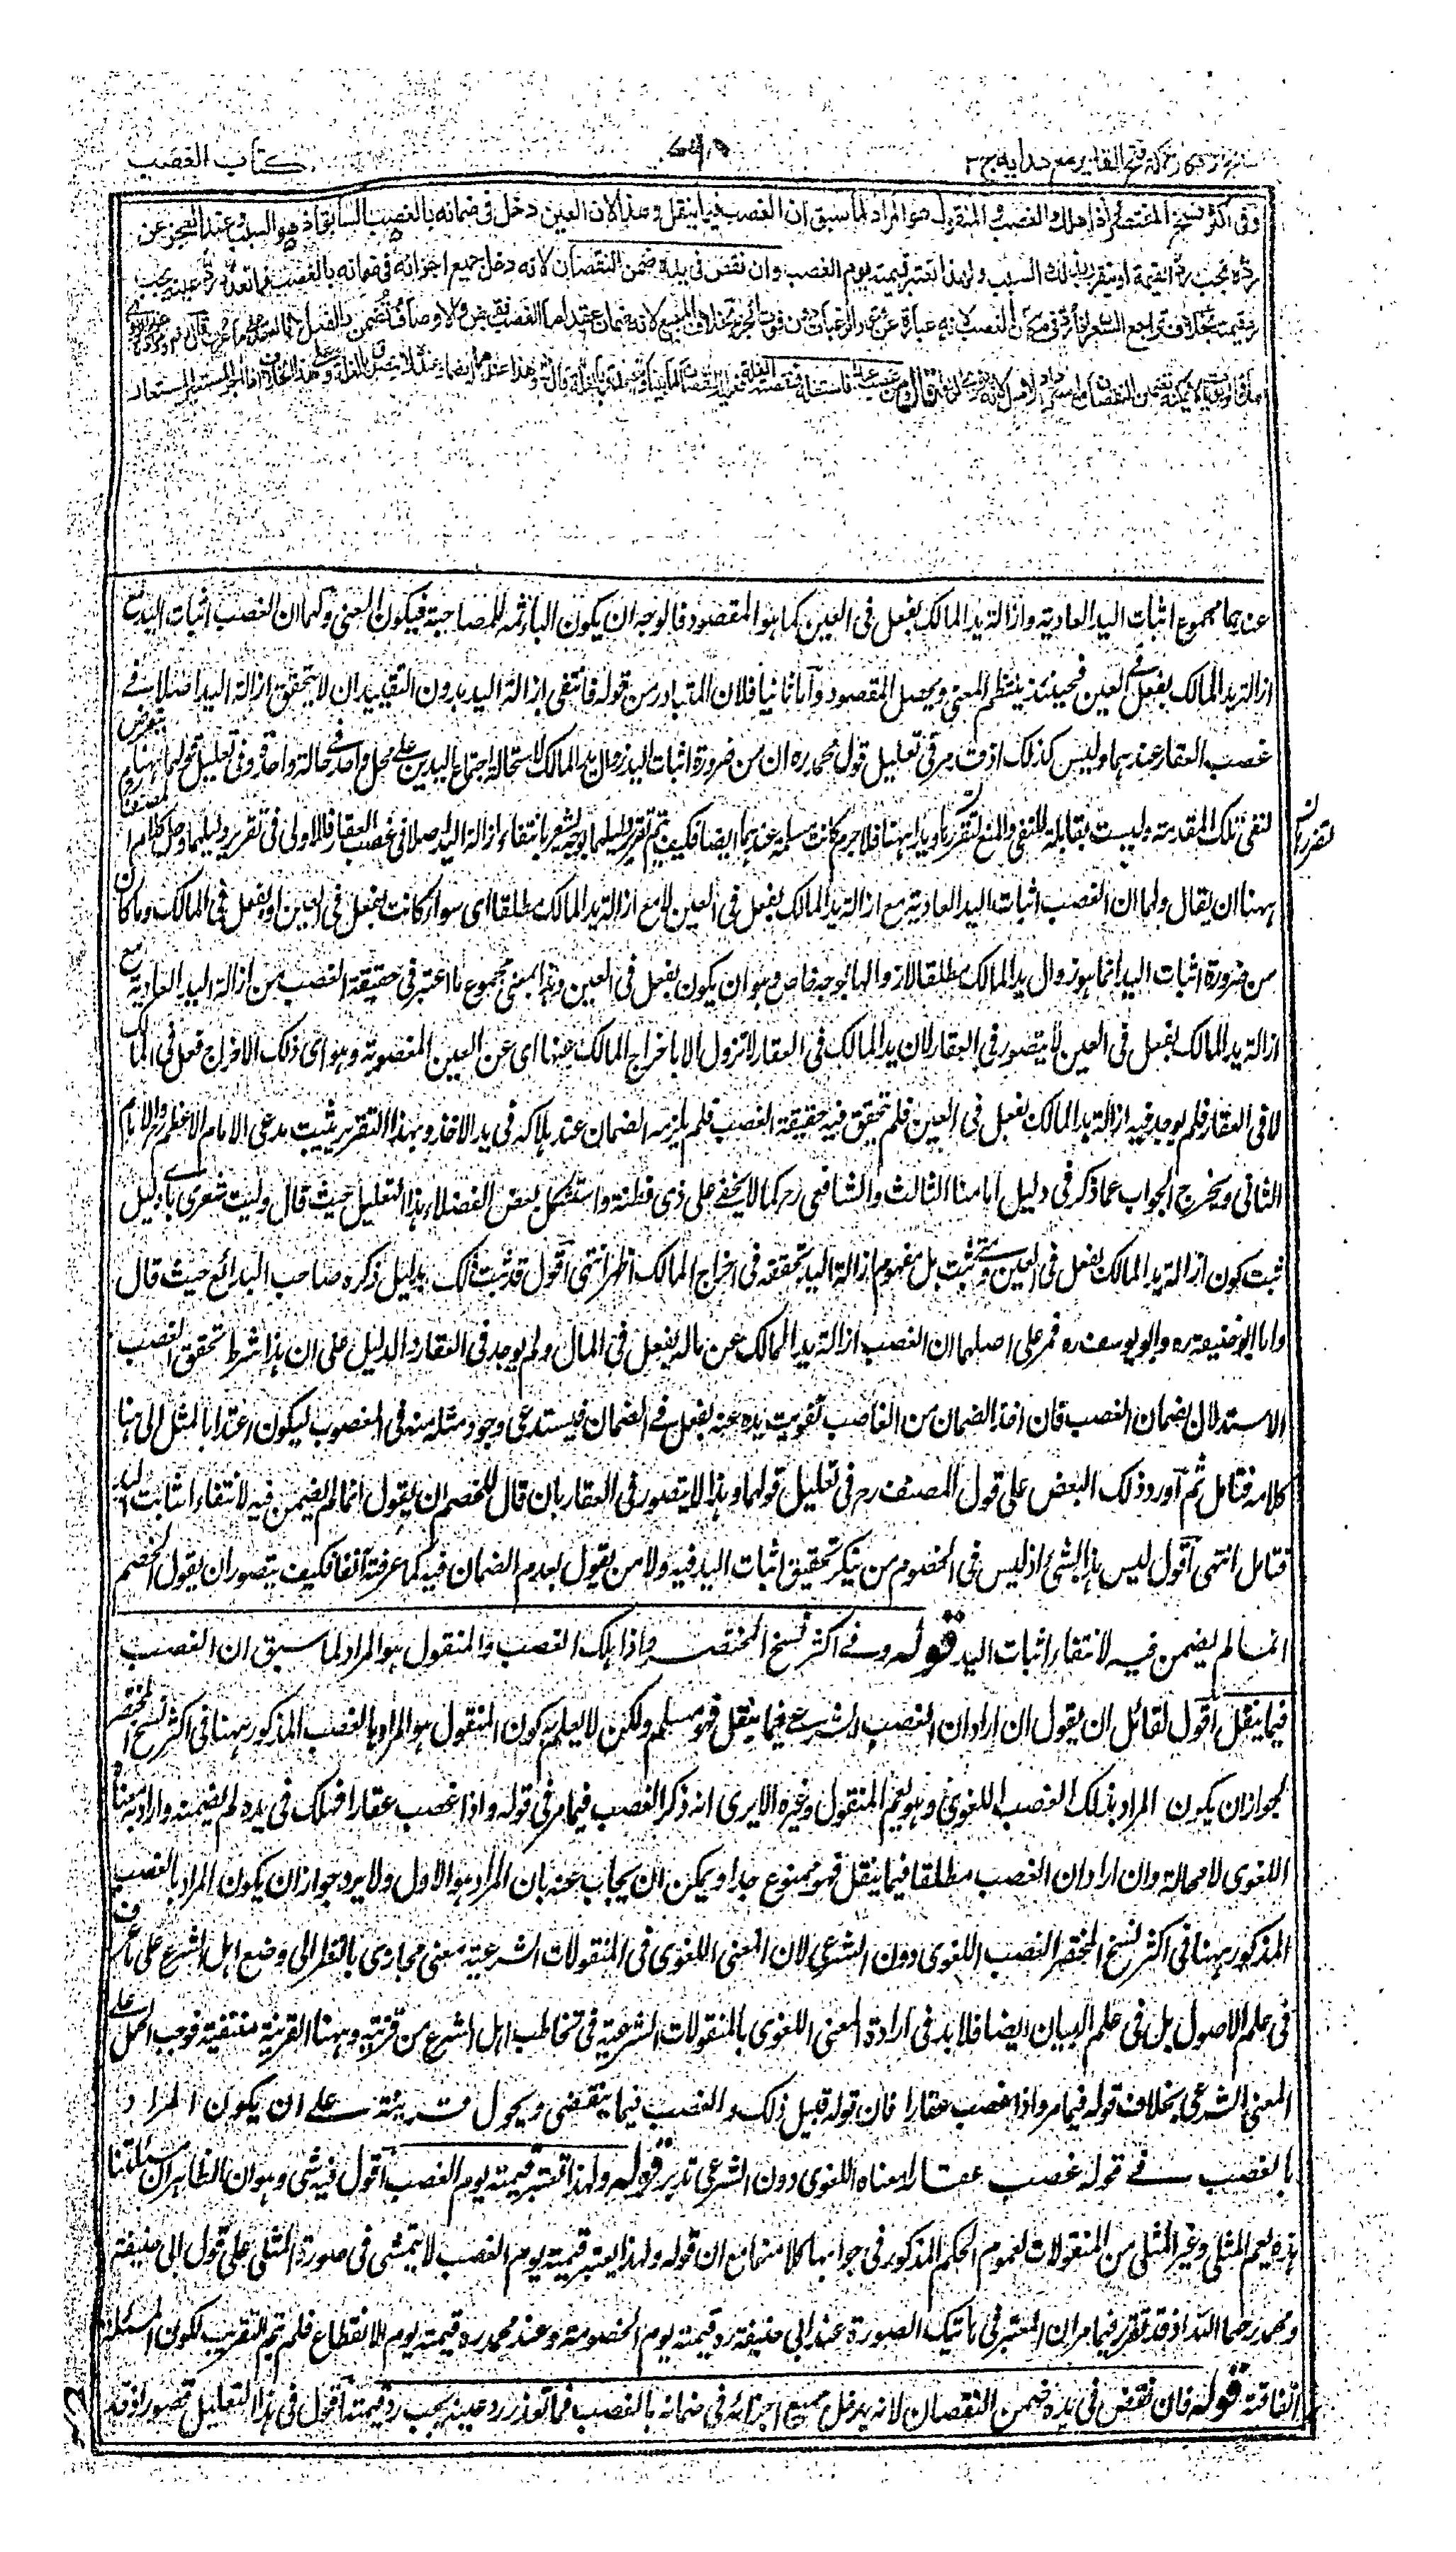 كتاب الغصب
وفى اكثر نسخ المختصر واذا هلك الغصب والمنقول هو المراد لما سبق ان الغصب فيما ينقل وهذا لان العين دخل فى ضمانه بالغصب السابق اذ هو السبب وعند العجز عن
رده تجب رد القيمة او يتقرر بذلك السبب ولهذا تعتبر قيمته يوم الغصب وان نقص فى يده ضمن النقصان لانه دخل جميع اجزائه فى ضمانه بالغصب فما تعذر رد عينه يجب
رد قيمته بخلاف تراجع السعر اذا رد فى مكان الغصب لانه عبارة عن فتور الرغبات دون فوت الجزء وبخلاف المبيع لانه ضمان عقد اما الغصب فقبض والاوصاف تضمن بالفعل لا بالعقد على ما عرف قال
عندهما مجموع اثبات اليد العادية وازالة يد المالك بفعل فى العين كما هو المقصود فالوجه ان يكون الباء ثمه للمصاحبة فيكون المعنى ولهما ان الغصب اثبات اليد مع
ازالة يد المالك بفعل فى العين فحينئذ ينتظم المعنى ويحصل المقصود واما ثانيا فلان المتبادر من قوله فانتفى ازالة اليد بدون التقييد ان لا يتحقق ازالة اليد اصلا فى
غصب العقار عندهما وليس كذلك اذ قد مر فى تعليل قول محمد ره ان من ضرورة اثبات اليد زوال يد المالك لاستحالة اجتماع اليدين على محل واحد فى حالة واحدة وفى تعليل قولهما ههنا لم يتعرض
لنفى تلك المقدمة وليست بقابلة للنفى والمنع فلا جرم كانت مسلمة عندهما ايضا فكيف يتم تقرير دليلهما بوجه يشعر بانتفاء ازالة اليد اصلا فى غصب العقار فالاولى فى تقرير دليلهما وحل كلام المصنف
ههنا ان يقال ولهما ان الغصب اثبات اليد العادية مع ازالة يد المالك بفعل فى العين لا مع ازالة يد المالك مطلقا اى سواء كانت بفعل فى العين او بفعل فى المالك وما كان
من ضرورة اثبات اليد انما هو زوال يد المالك مطلقا لا زوالها بوجه خاص وهو ان يكون بفعل فى العين وهذا المعنى مجموع ما اعتبر فى حقيقة الغصب من ازالة اليد العادية مع
ازالة يد المالك بفعل فى العين لا يتصور فى العقار لان يد المالك فى العقار لا تزول الا باخراج المالك عنها اى عن العين المغصوبة وهو اى ذلك الاخراج فعل فى المالك
لا فى العقار فلم يوجد فيه ازالة يد المالك بفعل فى العين فلم تتحقق فيه حقيقة الغصب فلم يلزمه الضمان عند هلاكه فى يد الاخذ وبهذا التقرير يثبت مدعى الامام الاعظم والامام
الثانى ويخرج الجواب عما ذكر فى دليل امامنا الثالث والشافعى رح كما لا يخفى على ذى فطنة واستشكل بعض الفضلاء هذا التعليل حيث قال وليت شعرى باى دليل
ثبت كون ازالة يد المالك بفعل فى العين ومتى ثبت بل مفهوم ازالة اليد تحققه فى اخراج المالك اظهر انتهى اقول قد ثبت ذلك بدليل ذكره صاحب البدائع حيث قال
واما ابو حنيفة ره وابو يوسف ره فمر على اصلهما ان الغصب ازالة يد المالك عن ماله بفعل فى المال ولم يوجد فى العقار والدليل على ان هذا شرط تحقق الغصب
الاستدلال بضمان الغصب فان اخذ الضمان من الغاصب تفويت يده عنه بفعل فى الضمان فيستدعى وجود مثله منه فى المغصوب ليكون اعتداء بالمثل الى هنا
كلامه فتامل ثم اورد ذلك البعض على قول المصنف رح فى تعليل قولهما وهذا لا يتصور فى العقار بان قال للخصم ان يقول انما لم يضمن فيه لانتفاء اثبات اليد
فتامل انتهى اقول ليس هذا بشئ اذ ليس فى الخصوم من ينكر تحقيق اثبات اليد فيه ولا من يقول بعدم الضمان فيه كما عرفته آنفا فكيف يتصور ان يقول الخصم
انما لم يضمن فيه لانتفاء اثبات اليد قوله وفى اكثر نسخ المختصر واذا هلك الغصب والمنقول هو المراد لما سبق ان الغصب
فيما ينقل اقول لقائل ان يقول ان اراد ان الغصب الشرعى فيما ينقل فهو مسلم ولكن لا يعلم به كون المنقول هو المراد بالغصب المذكور ههنا فى اكثر نسخ المختصر
لجواز ان يكون المراد بذلك الغصب اللغوى وهو يعم المنقول وغيره الا يرى انه ذكر الغصب فيما مر فى قوله واذا غصب عقارا فهلك فى يده لم يضمنه واراد به معناه
اللغوى لا محالة وان اراد ان الغصب مطلقا فيما ينقل فهو ممنوع جدا ويمكن ان يجاب عنه بان المراد هو الاول ولا يرد جواز ان يكون المراد بالغصب
المذكور ههنا فى اكثر نسخ المختصر الغصب اللغوى دون الشرعى لان المعنى اللغوى فى المنقولات الشرعية معنى مجازى بالنظر الى وضع اهل الشرع على ما عرف
فى علم الاصول بل فى علم البيان ايضا فلا بد فى ارادة المعنى اللغوى بالمنقولات الشرعية فى تخاطب اهل الشرع من قرينة وههنا القرينة منتفية فوجب الحمل على
المعنى الشرعى بخلاف قوله فيما مر واذا غصب عقارا فان قوله قبيل ذلك والغصب فيما ينقل ويحول قرينة على ان يكون المراد
بالغصب فى قوله غصب عقارا معناه اللغوى دون الشرعى تدبر قوله ولهذا تعتبر قيمته يوم الغصب اقول فيه شئ وهو ان الظاهر ان مسئلتنا
هذه يعم المثلى وغير المثلى من المنقولات لعموم الحكم المذكور فى جوابها كلا منهما مع ان قوله ولهذا يعتبر قيمته يوم الغصب لا يتمشى فى صورة المثلى على قول ابى حنيفة
ومحمد رحمهما الله اذ قد تقرر فيما مر ان المعتبر فى هاتيك الصورة عند ابى حنيفة ره قيمته يوم الخصومة وعند محمد ره قيمته يوم الانقطاع فلم يتم التقريب لكون المسئلة
اتفاقية قوله فان نقص فى يده ضمن النقصان لانه يدخل جميع اجزائه فى ضمانه بالغصب فما تعذر رد عينه يجب رد قيمته اقول فى هذا التعليل قصور اذ قد